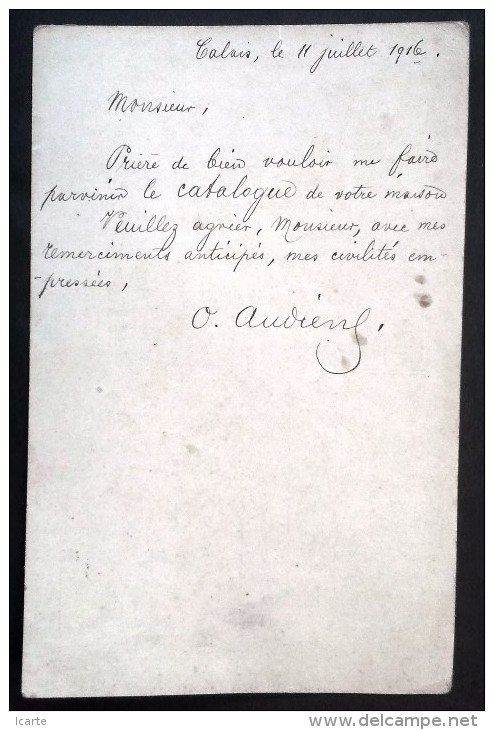 Calais, le 11 juillet 1916.
Monsieur,
Prière de bien vouloir me faire
parvenir le catalogue de votre maison
Veuillez agréer, Monsieur, avec mes
remerciments anticipés, mes civilités em-
-pressées,
O.
Icarte
www.delcampe.net